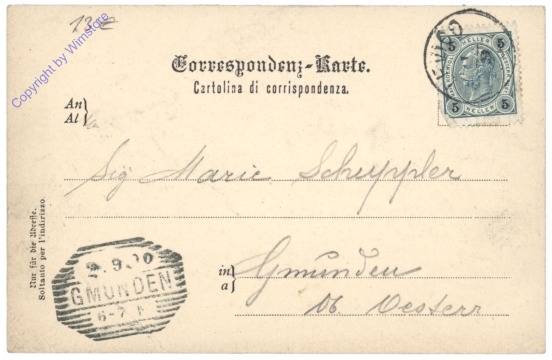 Copyright by Wimstore
13€
Correspondenz-Karte.
Cartolina di corrispondenza.
An
Al
5 HELLER 5
5 HELLER 5
Sig Marie Schuppler
in
a
Gmunden
Ob. Oesterr
Nur für die Adresse.
Soltanto per l'indirizzo
2.9.00
GMUNDEN
6-7